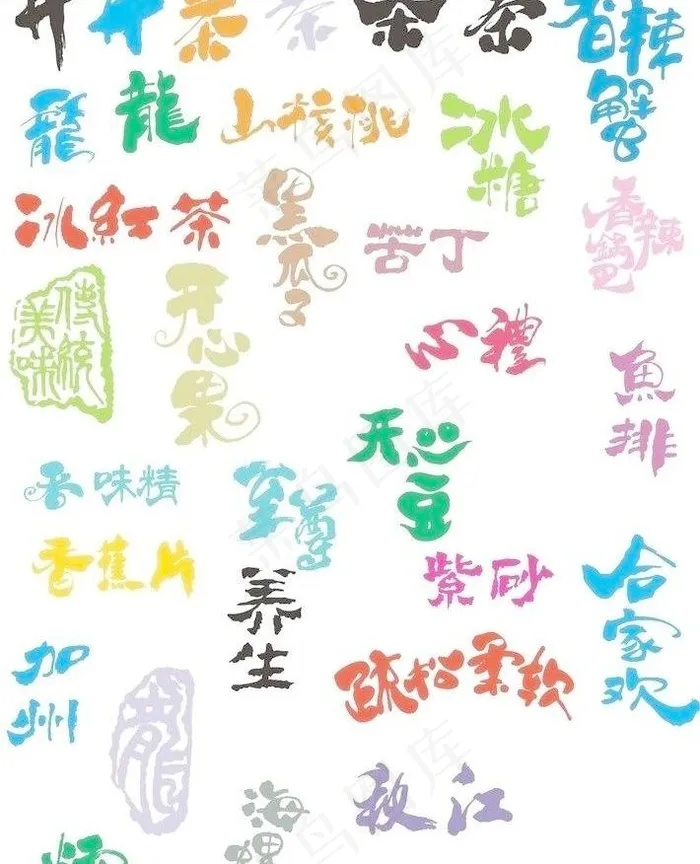 茶
茶
茶
茶
香辣蟹
龍
龍
山核桃
冰糖
冰紅茶
黑瓜子
苦丁
香辣鍋巴
傳統美味
开心果
心禮
魚排
开心豆
香味精
至尊
香蕉片
紫砂
养生
合家欢
加州
疏松柔软
龍
海螺
秋江
菜鸟图库